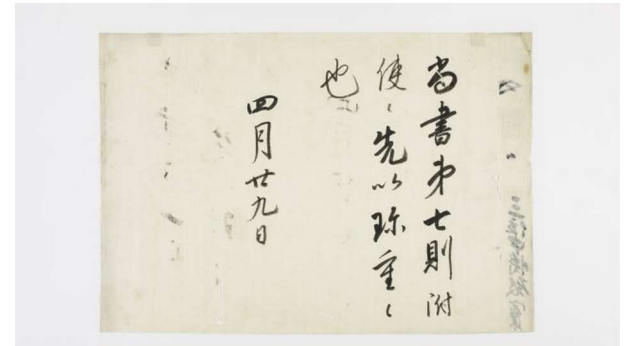 尚書第七則附
使〻先以珎重〻
也
四月廿九日